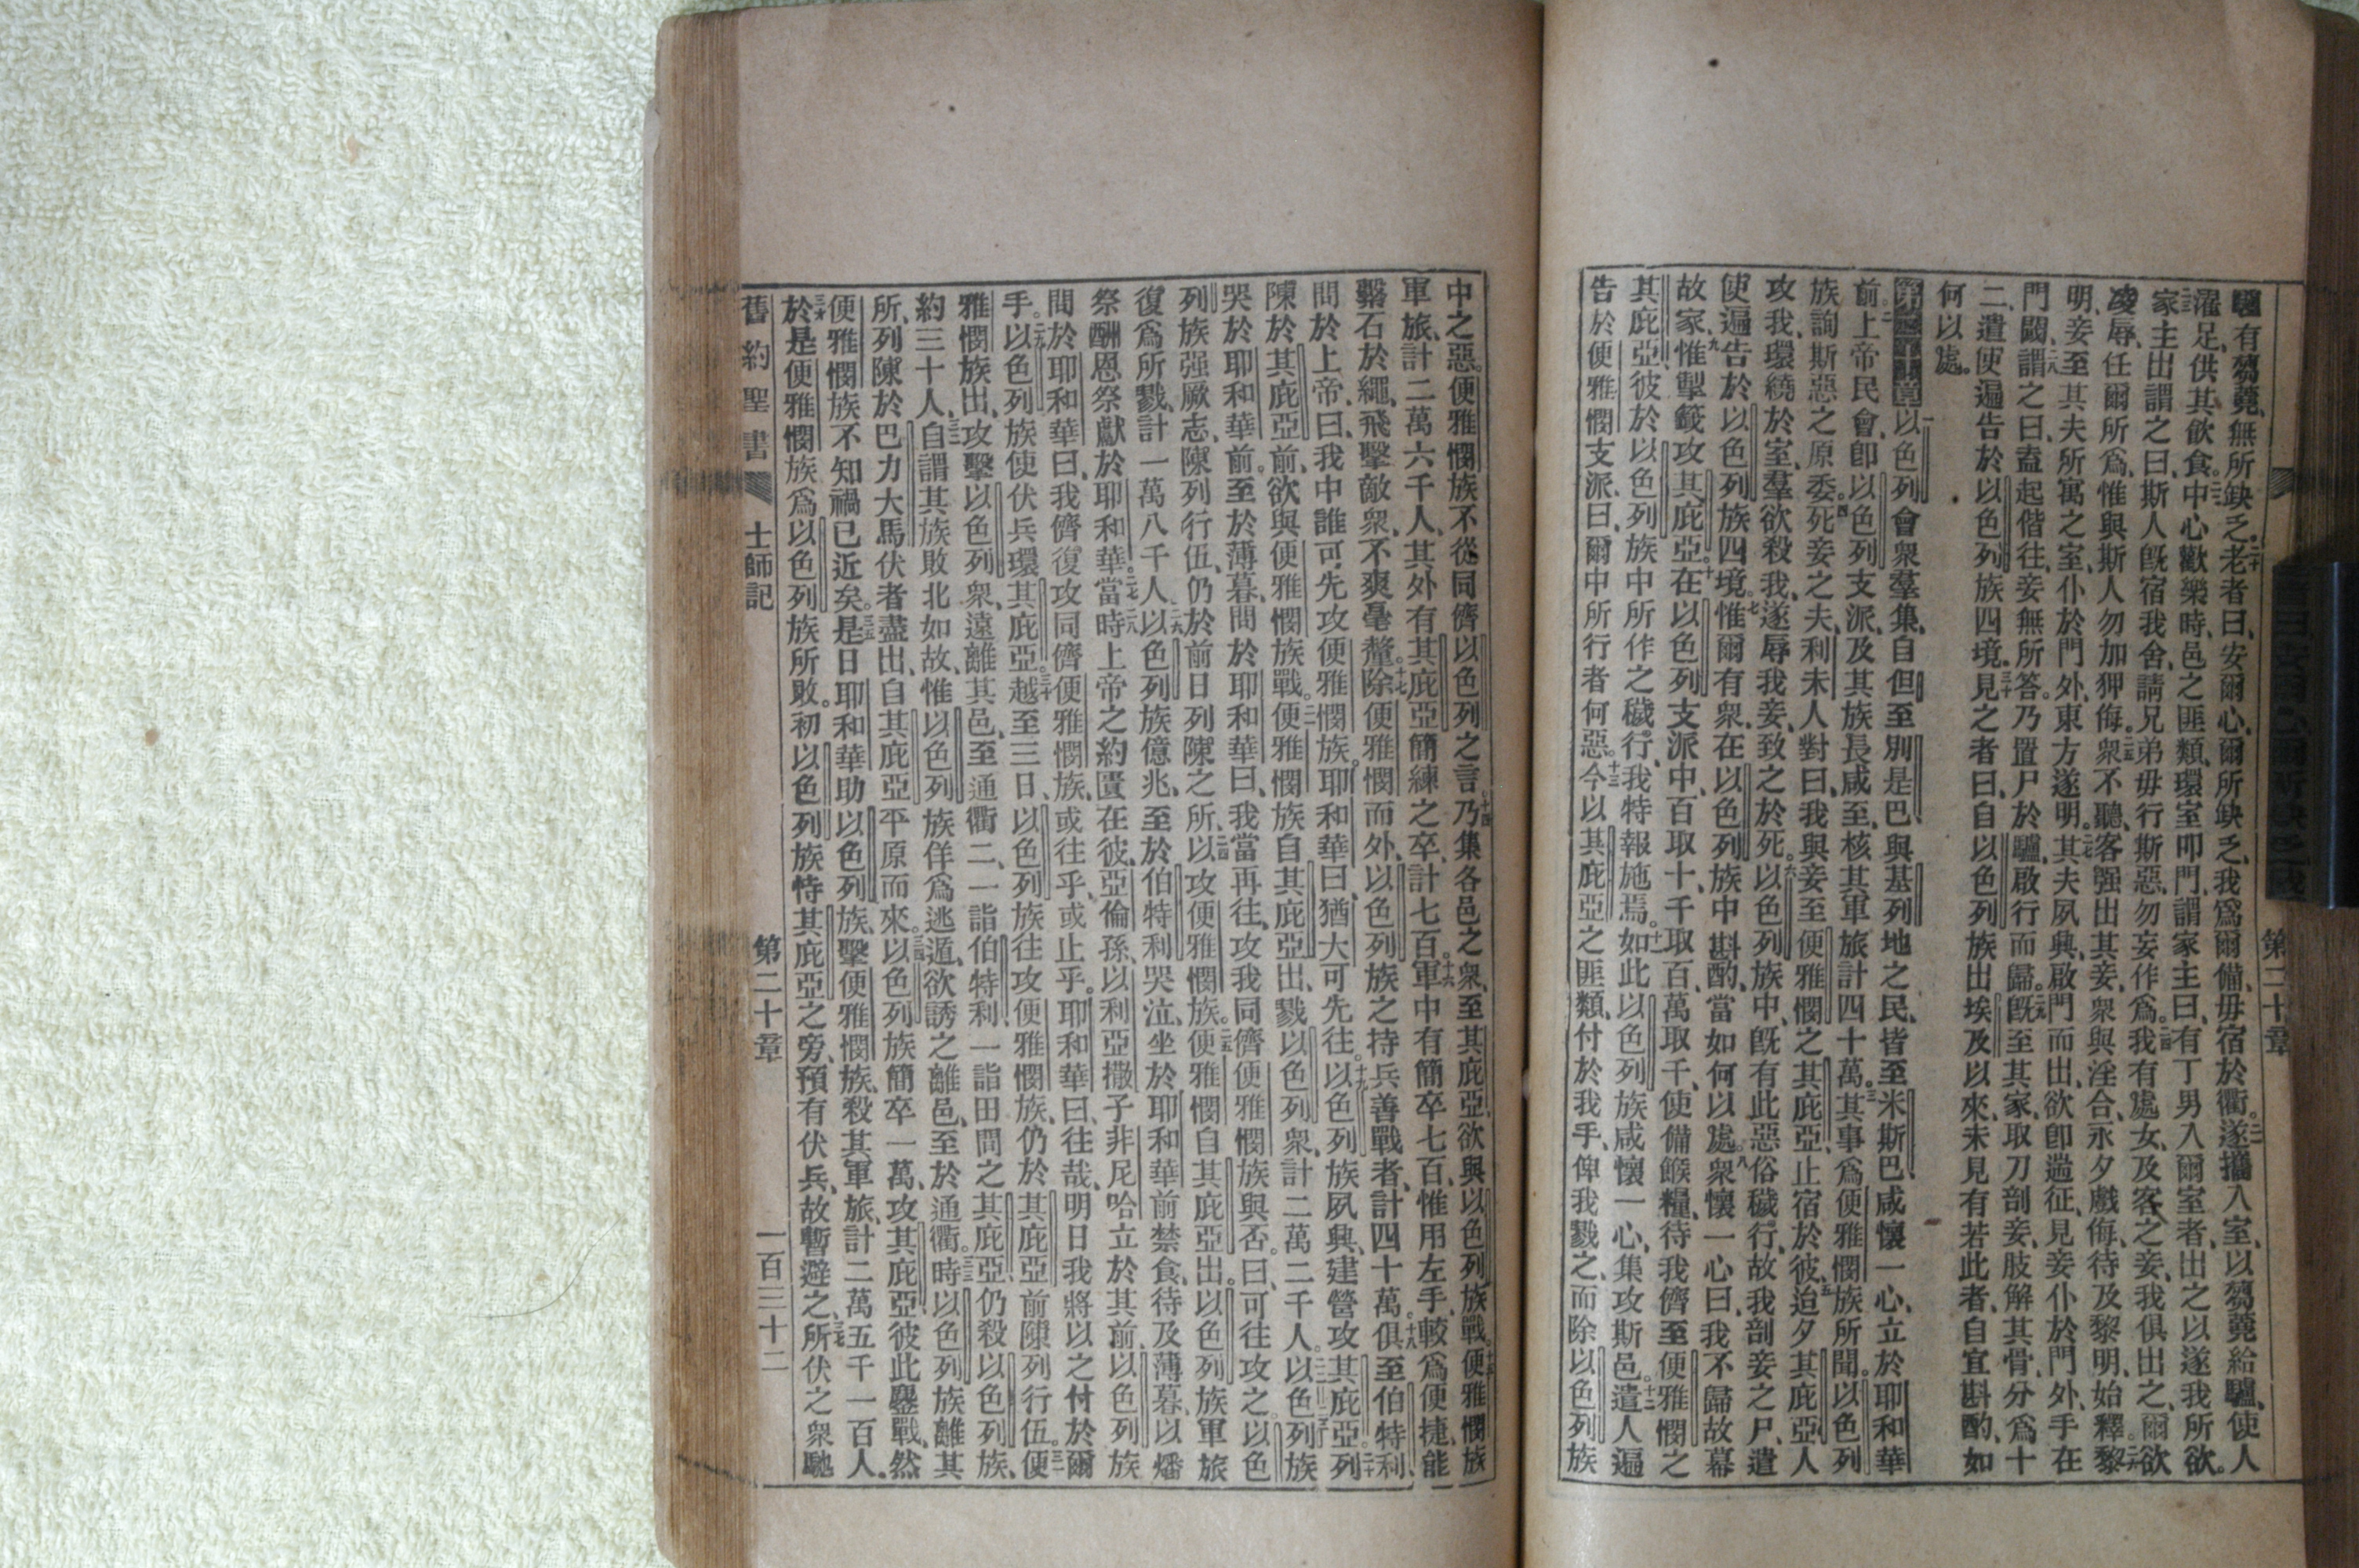 驢有芻蕘、無所缺乏、二十老者曰、安爾心、爾所缺乏、我爲爾備、毋宿於衢。二一遂攜入室、以芻蕘給驢、使人
濯足、供其飲食。二二中心歡樂時、邑之匪類、環室叩門、謂家主曰、有丁男入爾室者、出之以遂我所欲。
二三家主出謂之曰、斯人旣宿我舍、請兄弟毋行斯惡、勿妄作爲。二四我有處女、及客之妾、我俱出之、爾欲
凌辱、任爾所爲、惟與斯人勿加狎侮。二五衆不聽、客强出其妾、衆與淫合、永夕戲侮、待及黎明、始釋。二六黎
明、妾至其夫所寓之室、仆於門外、東方遂明。二七其夫夙興、啟門而出、欲卽遄征、見妾仆於門外、手在
門閾、二八謂之曰、盍起偕往、妾無所答。乃置尸於驢、啟行而歸。二九旣至其家、取刀剖妾、肢解其骨、分爲十
二、遣使遍告於以色列族四境。三十見之者曰、自以色列族出埃及以來、未見有若此者、自宜斟酌、如
何以處。
第二十章一以色列會衆羣集、自但至別是巴與基列地之民、皆至米斯巴、咸懷一心、立於耶和華
前。二上帝民會、卽以色列支派、及其族長咸至、核其軍旅計四十萬。三其事爲便雅憫族所聞。以色列
族詢斯惡之原委。四死妾之夫、利未人對曰、我與妾至便雅憫之其庇亞、止宿於彼、五迨夕其庇亞人
攻我、環繞於室、羣欲殺我、遂辱我妾、致之於死。六以色列族中、旣有此惡俗穢行、故我剖妾之尸、遣
使遍告於以色列族四境。七惟爾有衆、在以色列族中、斟酌、當如何以處。八衆懷一心曰、我不歸故幕
故家、九惟掣籤攻其庇亞。十在以色列支派中、百取十、千取百、萬取千、使備餱糧、待我儕至便雅憫之
其庇亞、彼於以色列族中所作之穢行、我特報施焉。十一如此以色列族咸懷一心、集攻斯邑。十二遣人遍
告於便雅憫支派、曰、爾中所行者何惡。十三今以其庇亞之匪類、付於我手、俾我戮之、而除以色列族
第二十章
中之惡。便雅憫族不從同儕以色列之言、十四乃集各邑之衆、至其庇亞、欲與以色列族戰。十五便雅憫族
軍旅、計二萬六千人、其外有其庇亞簡練之卒、計七百。十六軍中有簡卒七百、惟用左手、較爲便捷、能
繫石於繩、飛擊敵衆、不爽毫釐。十七除便雅憫而外、以色列族之持兵善戰者、計四十萬。十八俱至伯特利、
問於上帝、曰、我中誰可先攻便雅憫族。耶和華曰、猶大可先往。十九以色列族夙興、建營攻其庇亞。二十列
陳於其庇亞前、欲與便雅憫族戰。二一便雅憫族自其庇亞出、戮以色列衆、計二萬二千人。二二二三以色列族
哭於耶和華前。至於薄暮、問於耶和華曰、我當再往、攻我同儕便雅憫族與否。曰、可往攻之。以色
列族强厥志、陳列行伍、仍於前日列陳之所、二四以攻便雅憫族。二五便雅憫自其庇亞出。以色列族軍旅
復爲所戮、計一萬八千人、二六以色列族億兆、至於伯特利哭泣、坐於耶和華前禁食、待及薄暮、以燔
祭酬恩祭獻於耶和華。二七二八當時上帝之約匱在彼、亞倫孫以利亞撒子非尼哈立於其前、以色列族
問於耶和華曰、我儕復攻同儕便雅憫族、或往乎、或止乎。耶和華曰、往哉、明日我將以之付於爾
手。二九以色列族使伏兵環其庇亞。三十越至三日、以色列族往攻便雅憫族、仍於其庇亞前陳列行伍。三一便
雅憫族出、攻擊以色列衆、遠離其邑、至通衢二、一詣伯特利、一詣田間之其庇亞、仍殺以色列族、
約三十人、三二自謂其族敗北如故、惟以色列族佯爲逃遁、欲誘之離邑、至於通衢。三三時以色列族離其
所、列陳於巴力大馬、伏者盡出、自其庇亞平原而來。三四以色列族簡卒一萬、攻其庇亞、彼此鏖戰、然
便雅憫族不知禍已近矣。三五是日耶和華助以色列族、擊便雅憫族、殺其軍旅、計二萬五千一百人。
三六於是便雅憫族爲以色列族所敗。初以色列族恃其庇亞之旁、預有伏兵、故暫避之、三七所伏之衆馳
舊約聖書 士師記 第二十章 一百三十二